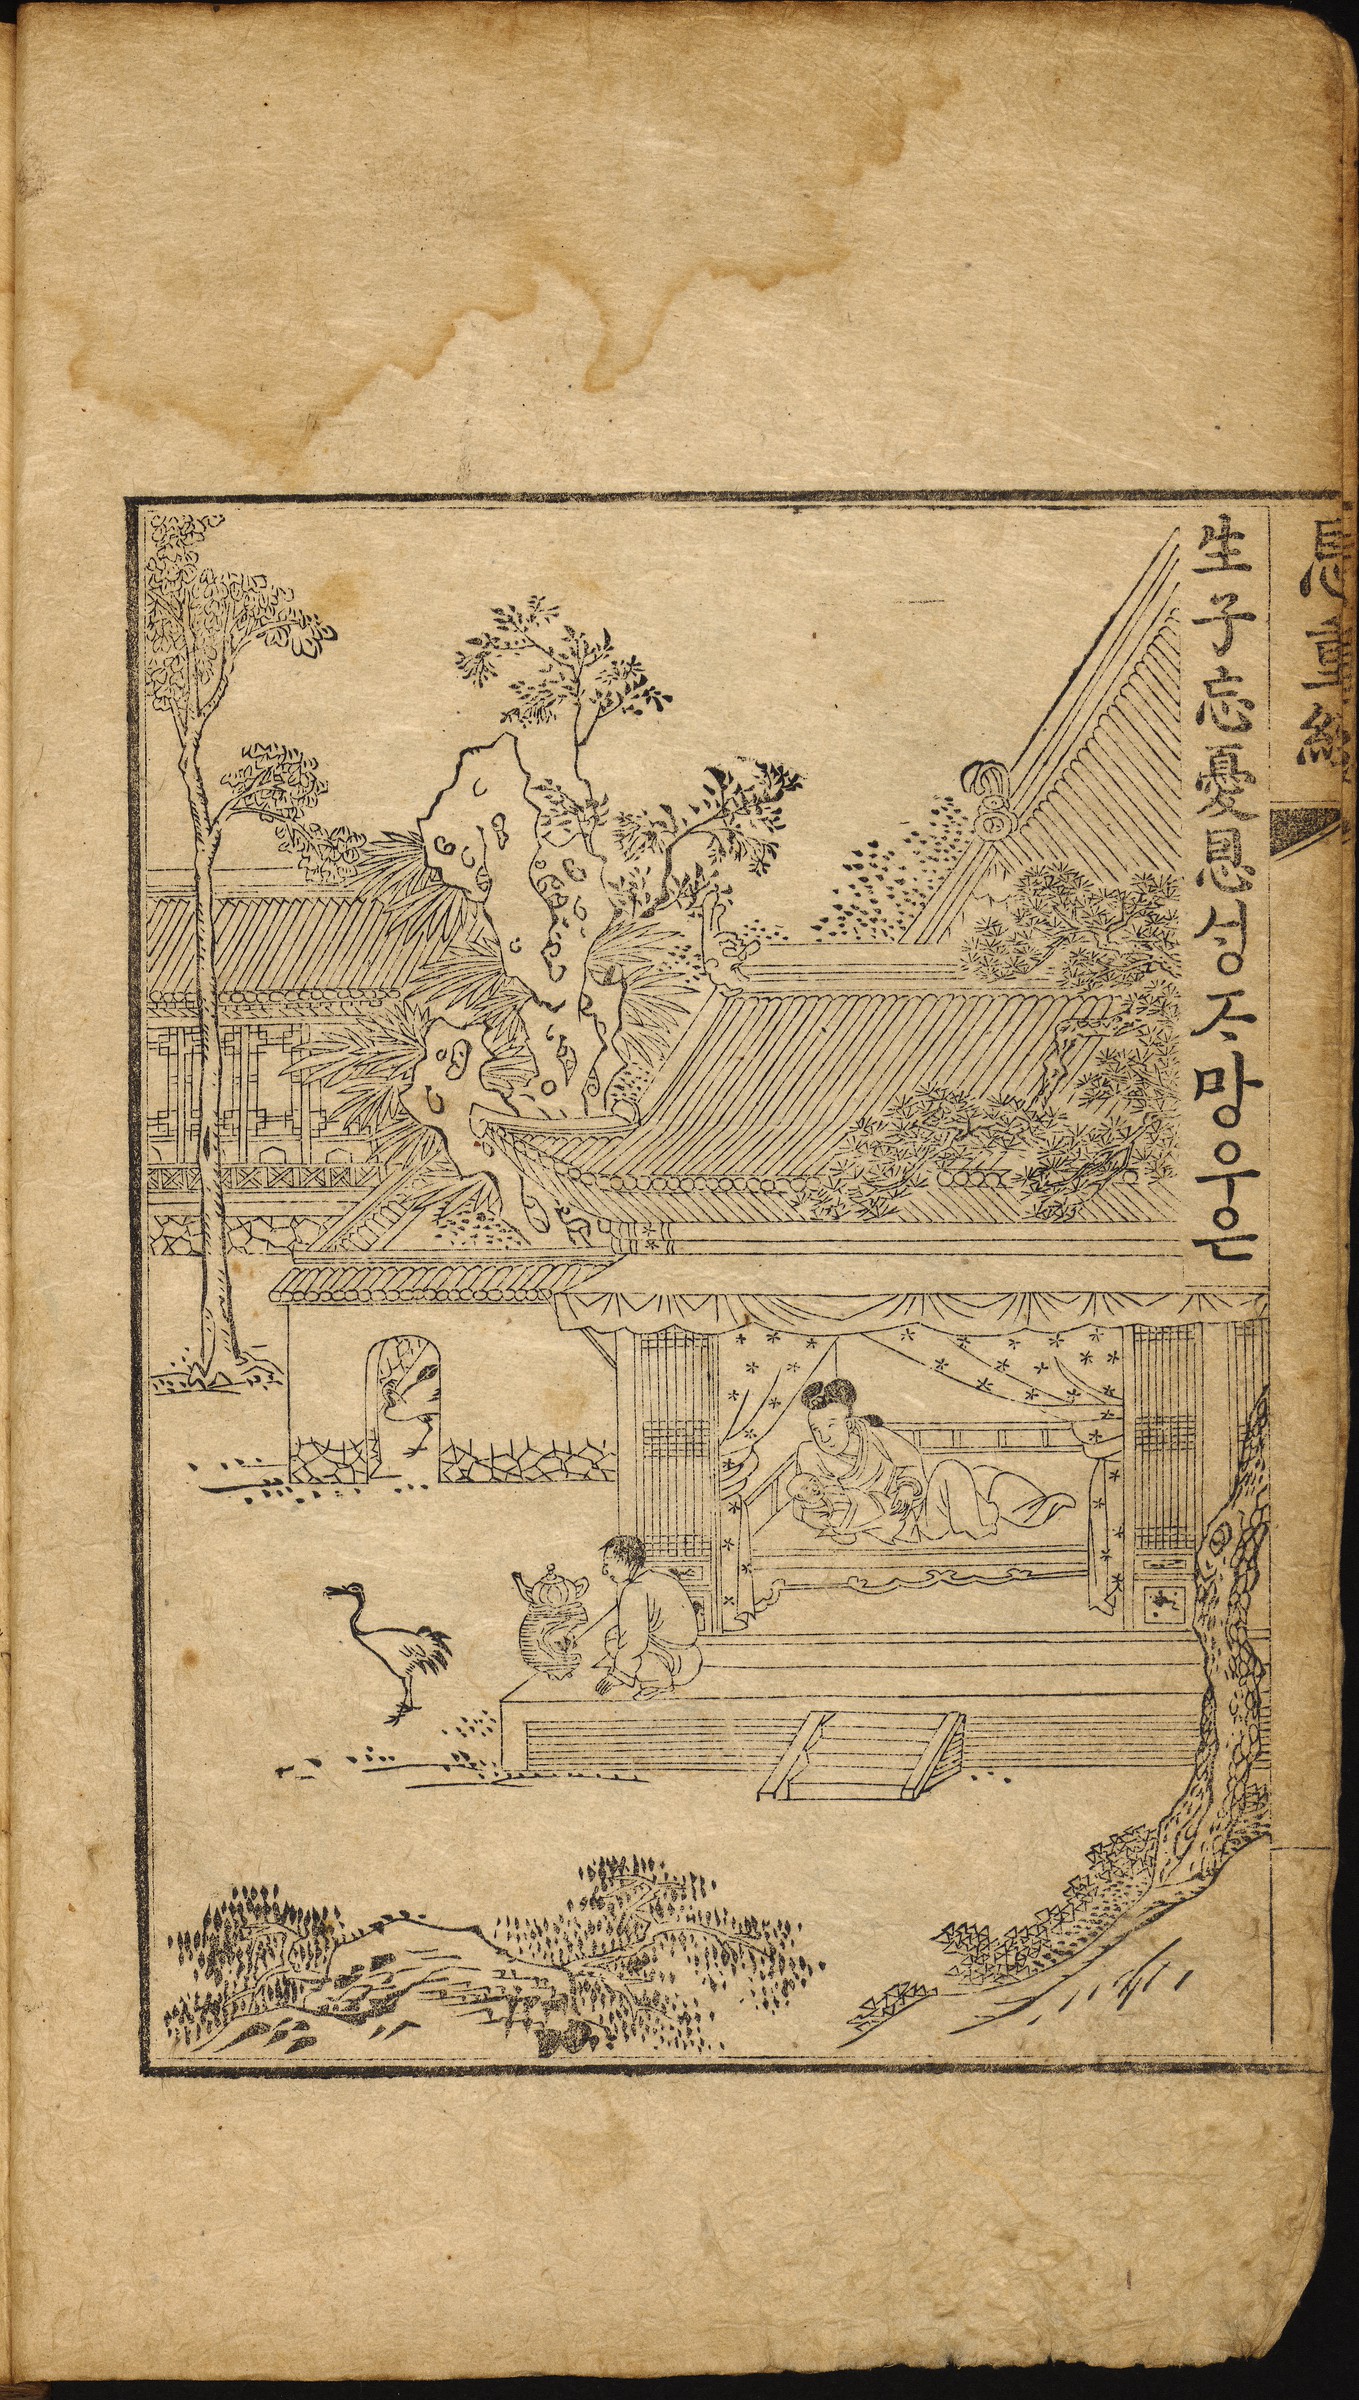 生子忘憂恩성ᄌᆞ망우은
恩重經